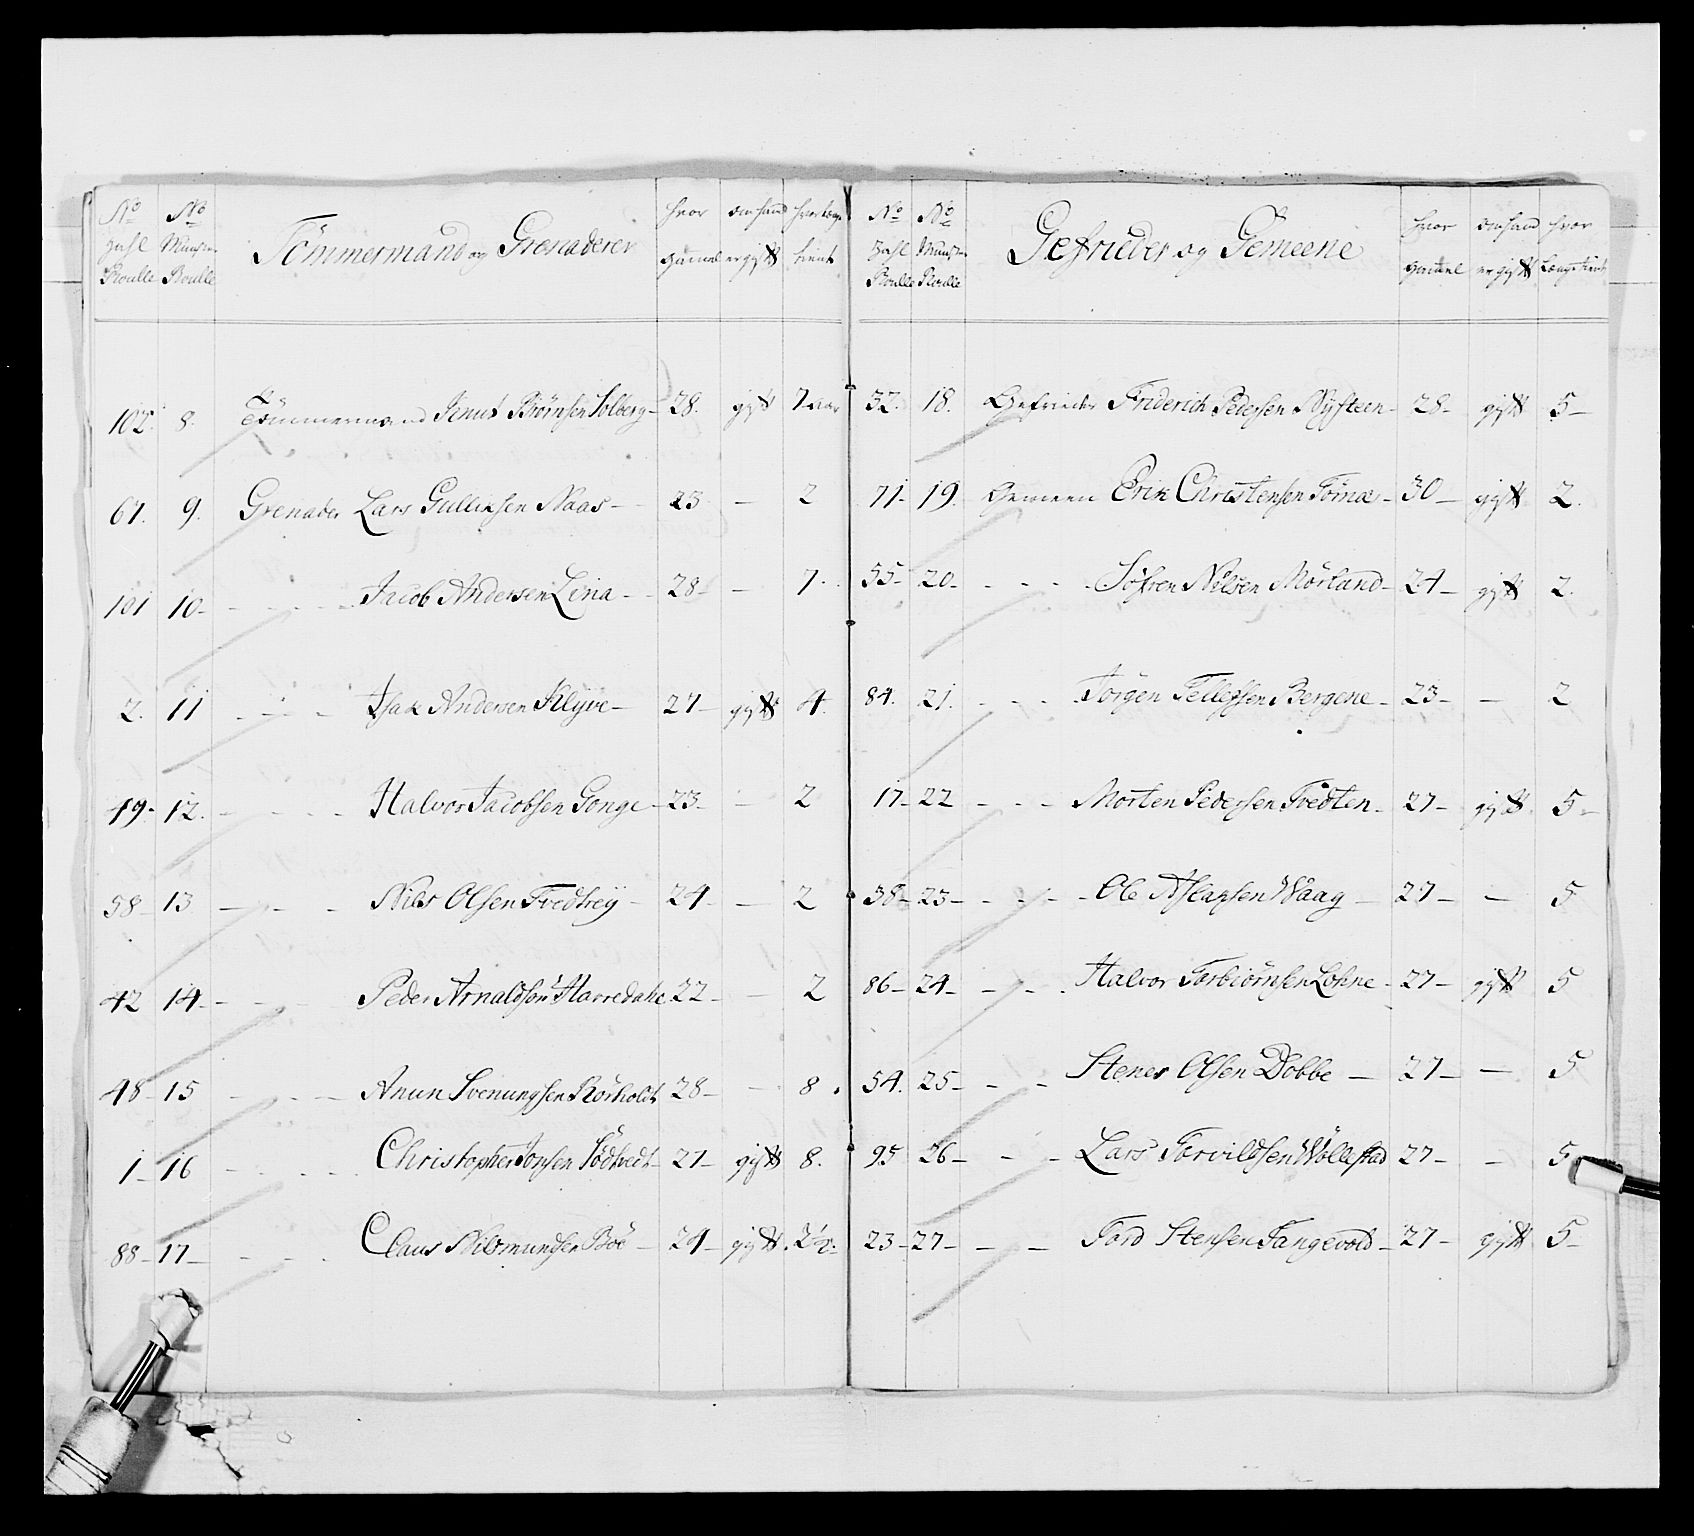 No Zahl Roulle | No Munster Roulle | Tömmermand og Grenaderer | hvor gammel | om hand er gift | hvor længe tient
102. 8. Tömmermand Knut Biörnsen Solberg - 28. gift 7 aar
67. 9. Grenader Lars Gullichsen Naas - 23 - 2
101 10 - - - - Jacob Andersen Lina - 28 - 7.
2. 11 - - - Isak Andersen Klyve - 27 - gift 4.
49. 12. - - - - Halvor Jacobsen Gonge - 23 - 2
58 - 13 - - - Nils Olsen Tvedtrey - 24 - 2
42 14 - - - Peder Arnaldsøn Harredahe 22 - - 2
48 - 15 - - - Anun Svenungsen Rörholdt 28 - - 8.
1 - 16 - - - - Christopher Jonsen Födtvedt - 27 - gift 8.
88 - 17 - - - - Claus Nilsmundsen Böe - 24 - gift. 2 1/2.
No Zahl Roulle | No Munster Roulle | Gefrieder og Gemeene | hvor gammel | om hand er gift | hvor længe tient
32. 18. Gefrieder Friderich Pedersen Nysteen - 28 - gift 5 -
71 - 19. Gemeen Erik Christensen Tornæs - 30 - gift 2.
55 - 20 - - - - Söfren Nilsen Mörland - 24 - gift 2.
84. 21. - - - Jörgen Tellefsen Bergene - 23 - - 2
17 - 22 - - - Morten Pedersen Tvedten - 27 - gift. 5 -
38 - 23 - - - - Ole Aslaksen Waag - 27 - - 5
86 - 24 - - - - Halvor Torbiörnsen Lohne - 27 - gift 5
54. 25 - - - Stener Olsen Dobbe - 27 - - 5
95 26 - - - - Lars Torvildsen Wöllestad 27 - - 5
23 - 27 - - - Tord Stensen Tangevold - 27 - gift 5 -